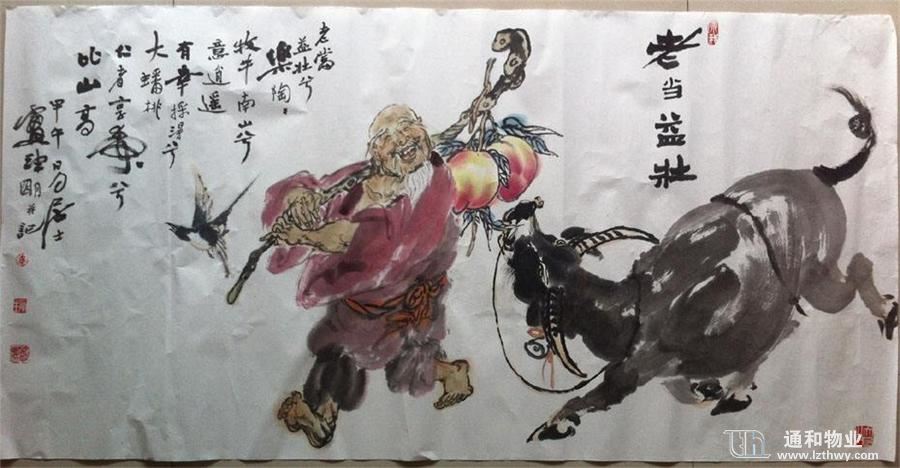 老当益壮
老當
益壮兮
樂陶々
牧牛南山兮
意逍遥
有幸採得兮
大蟠桃
仁者享寿兮
比山高
甲午 居士
明并記
通和物业
www.lzthwy.com